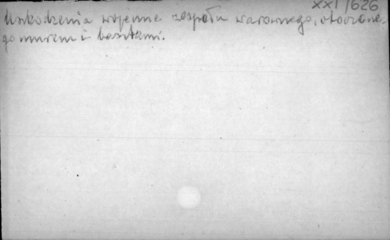 XXI/626
Uszkodzenia wojenne zespołu warownego, otoczone-
go murem i basztami.